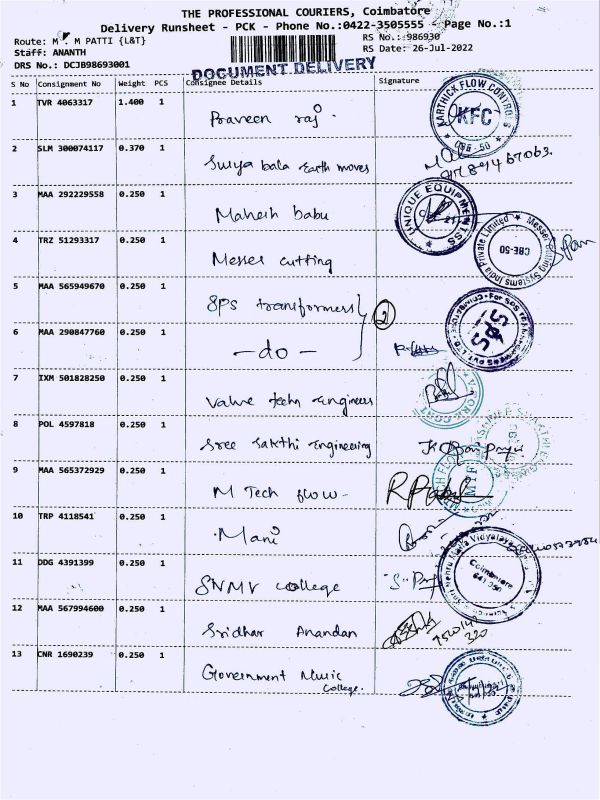 THE PROFESSIONAL COURIERS, Coimbatore
Delivery Runsheet - PCK - Phone No.:0422-3505555 - Page No.:1
Route: M . M PATTI {L&T} RS No.: 986930
Staff: ANANTH RS Date: 26-Jul-2022
DRS No.: DCJB98693001
DOCUMENT DELIVERY
S No Consignment No Weight PCS Consignee Details Signature
1 TVR 4063317 1.400 1 Praveen raj KARTHICK FLOW CONTROLS KFC CBE-50
2 SLM 300074117 0.370 1 Surya bala Earth moves
3 MAA 292229558 0.250 1 Mahesh babu UNIQUE EQUIPMENTSS
4 TRZ 51293317 0.250 1 Messer cutting Messer Cutting Systems India Private Limited CBE-50
5 MAA 565949670 0.250 1 SPS transformers 2
6 MAA 290847760 0.250 1 - do -
7 IXM 501828250 0.250 1 Valve techn Engineers
8 POL 4597818 0.250 1 Sree Sakthi Engineering
9 MAA 565372929 0.250 1 M Tech flow - MTF
10 TRP 4118541 0.250 1 Mani
11 DDG 4391399 0.250 1 SNMV College Coimbatore 641 050
12 MAA 567994600 0.250 1 Sridhar Anandan
13 CNR 1690239 0.250 1 Government Music
College.